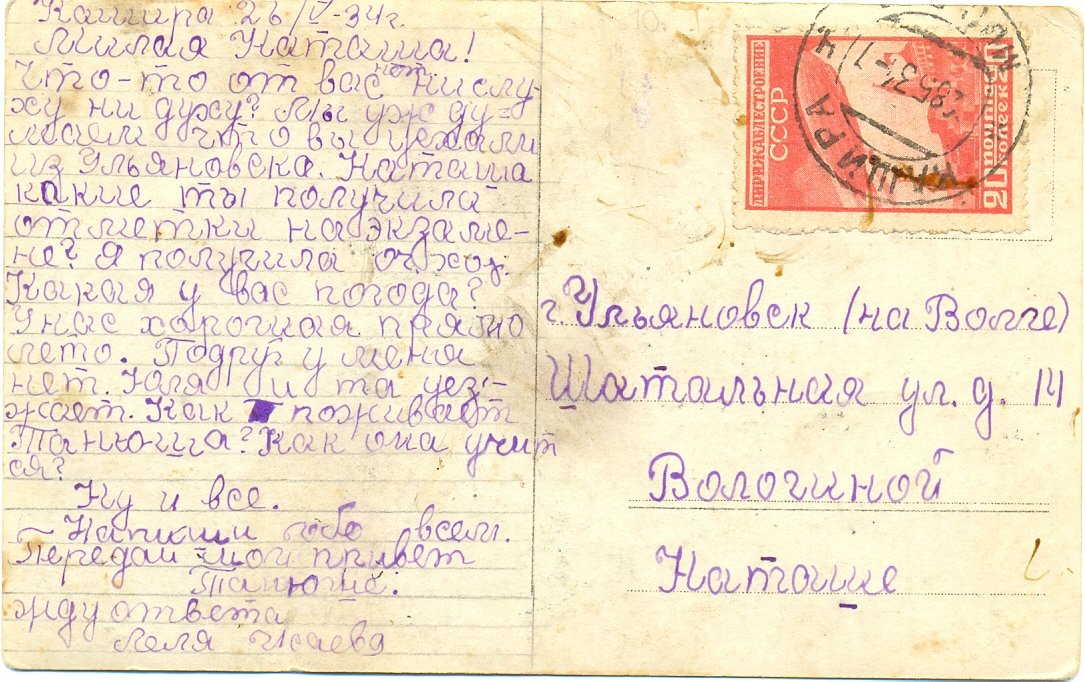 Кашира 26/V-34г.
Милая Наташа!
Что-то от вас нет ни слу-
ху ни духу? Мы уж ду-
маем что вы уехали
из Ульяновска. Наташа
какие ты получила
отметки на экзаме-
не? Я получила оч. хор.
Какая у вас погода?
У нас хорошая прямо
лето. Подруг у меня
нет. Юля и та уез-
жает. Как поживает
Танюша? Как она учит
ся?
Ну и все.
Напиши обо всем.
Передай мой привет
Танюше.
жду ответа
Леля Исаева
ДИРИЖАБЛЕСТРОЕНИЕ
СССР
20 ПОЧТА КОПЕЕК 20
КАШИРА
г. Ульяновск (на Волге)
Шатальная ул. д. 14
Вологиной
Наташе